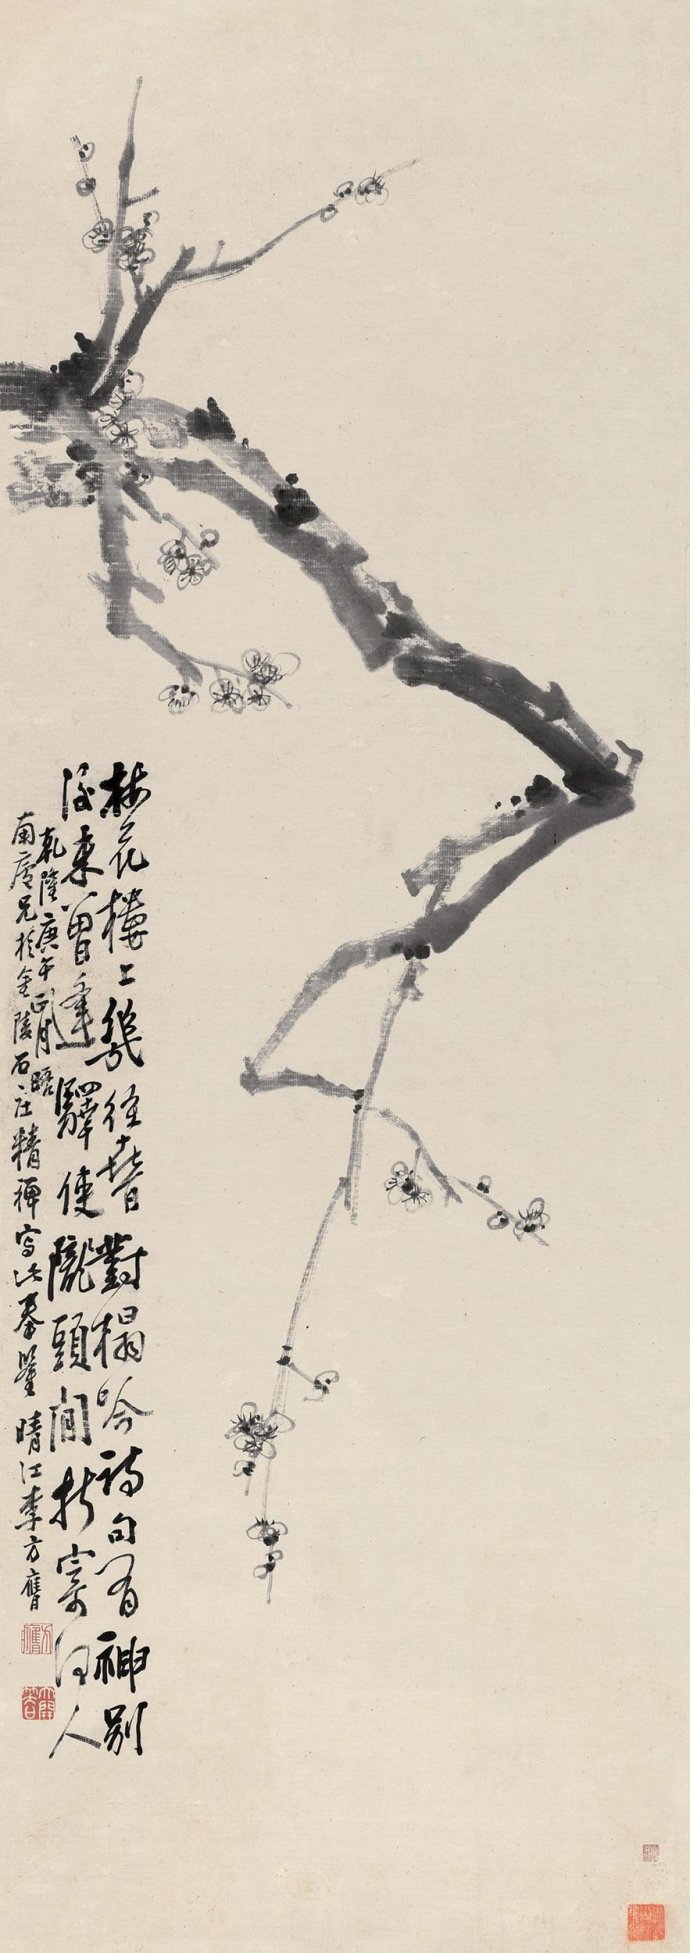 梅花樓上幾經春對榻吟詩句有神別
後未曾逢驛使隴頭閒折寄何人
乾隆庚午正月晤
南廬兄於金陵石庄精禪寫此奉鑒 晴江李方膺